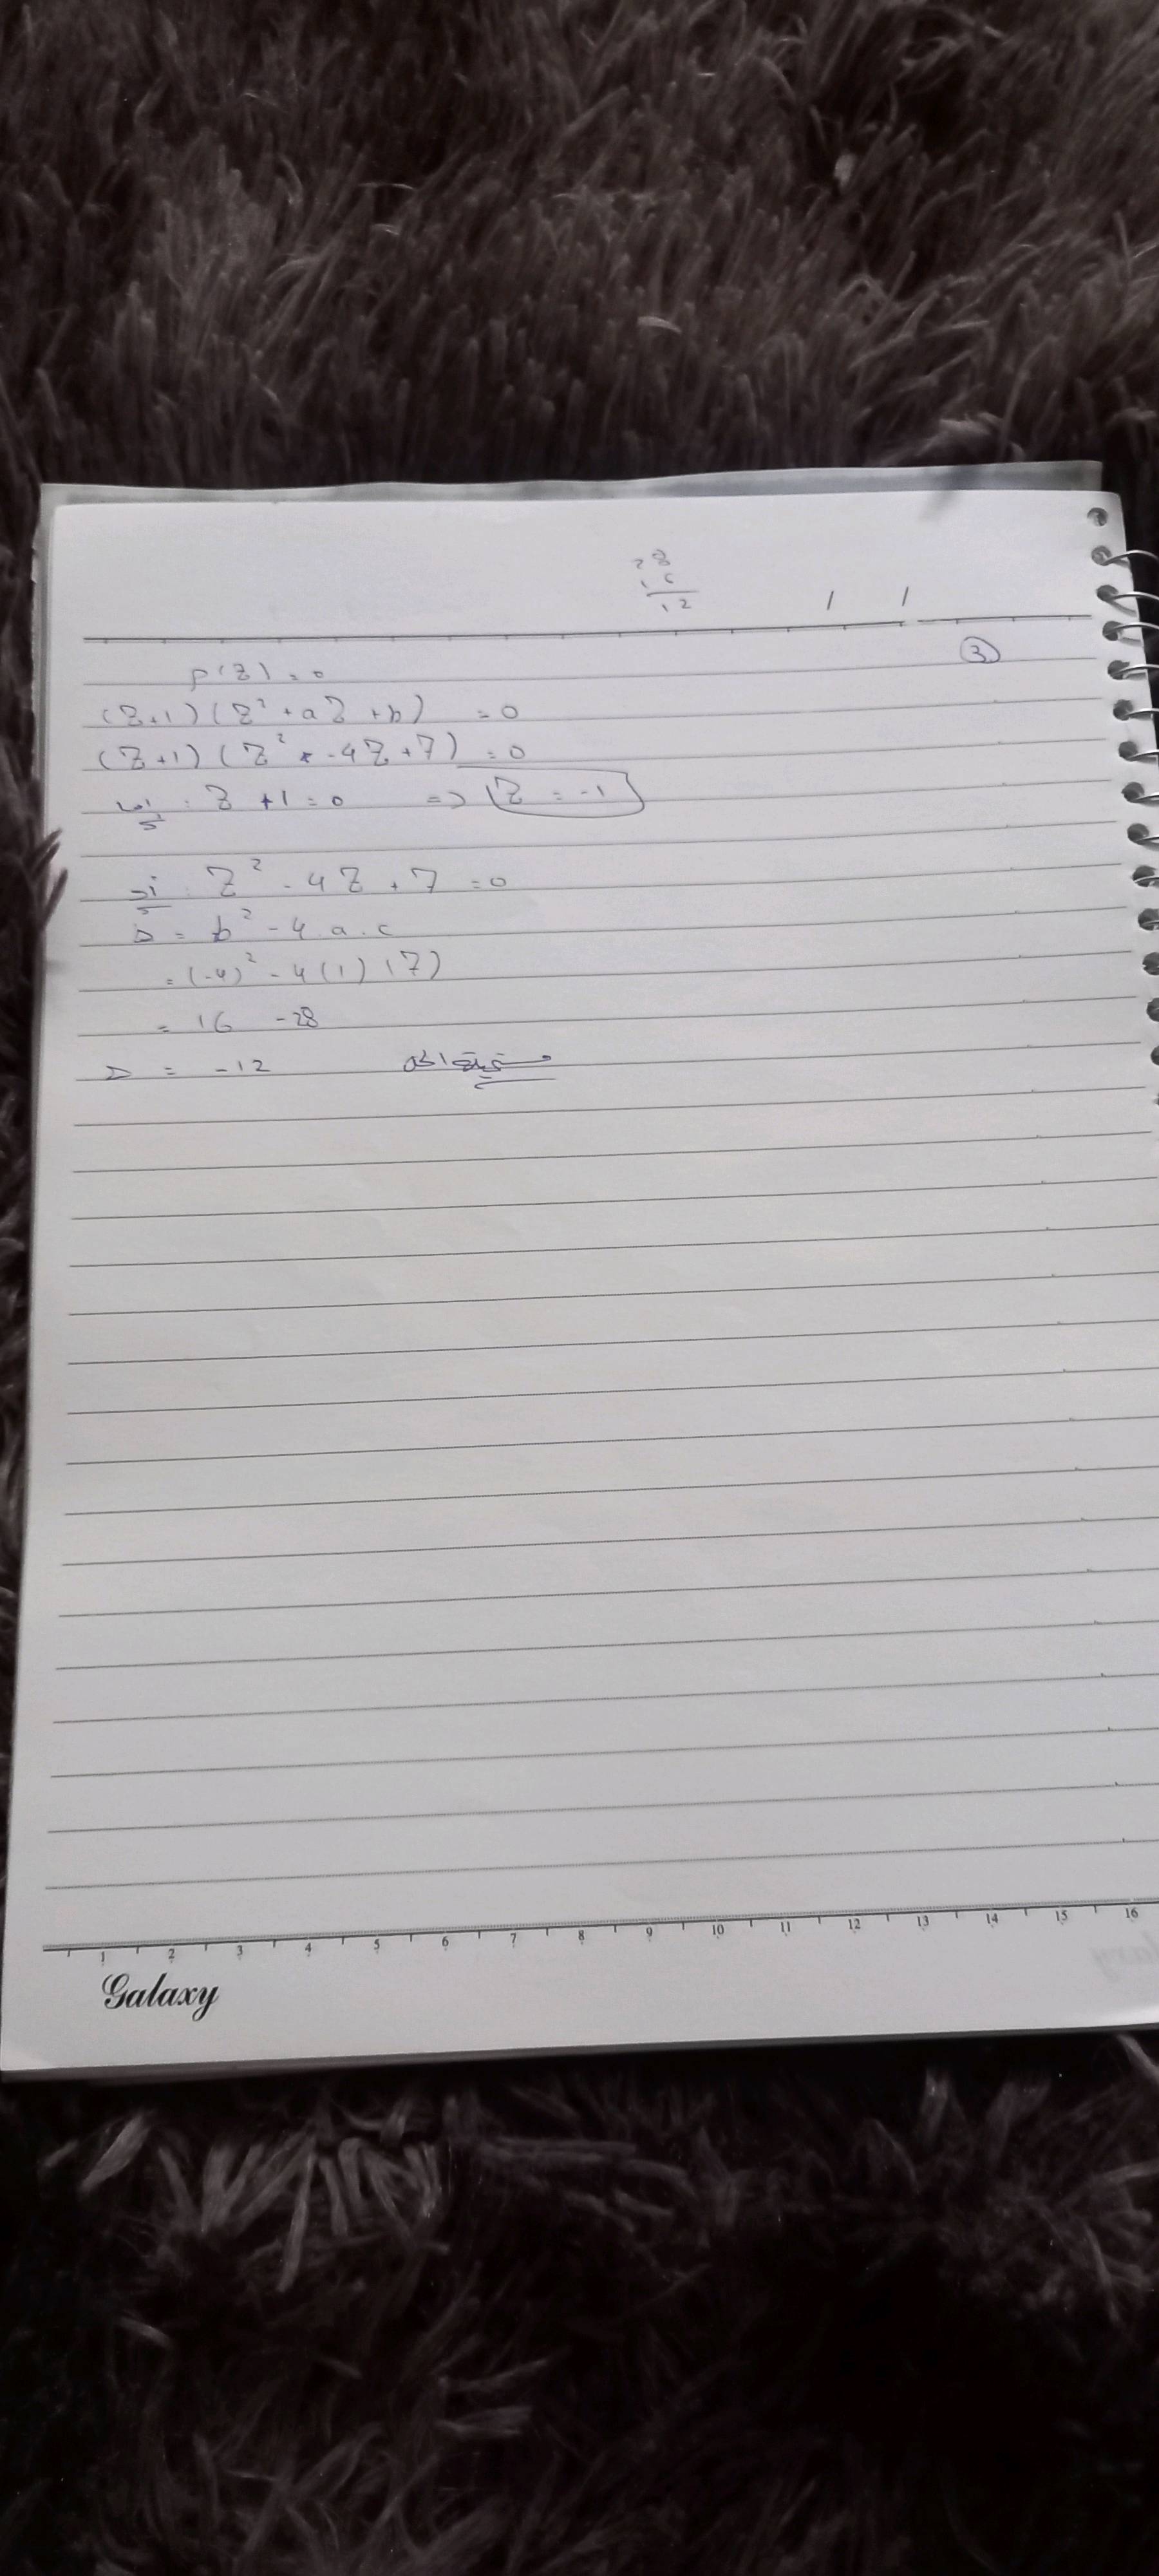 28
16
12
/ /
3
p(z) = 0
(z+1)(z² + az + b) = 0
(z+1)(z² - 4z + 7) = 0
إما : z + 1 = 0 => z = -1
أو : z² - 4z + 7 = 0
Δ = b² - 4.a.c
= (-4)² - 4(1)(7)
= 16 - 28
Δ = -12
1 2 3 4 5 6 7 8 9 10 11 12 13 14 15 16
Galaxy